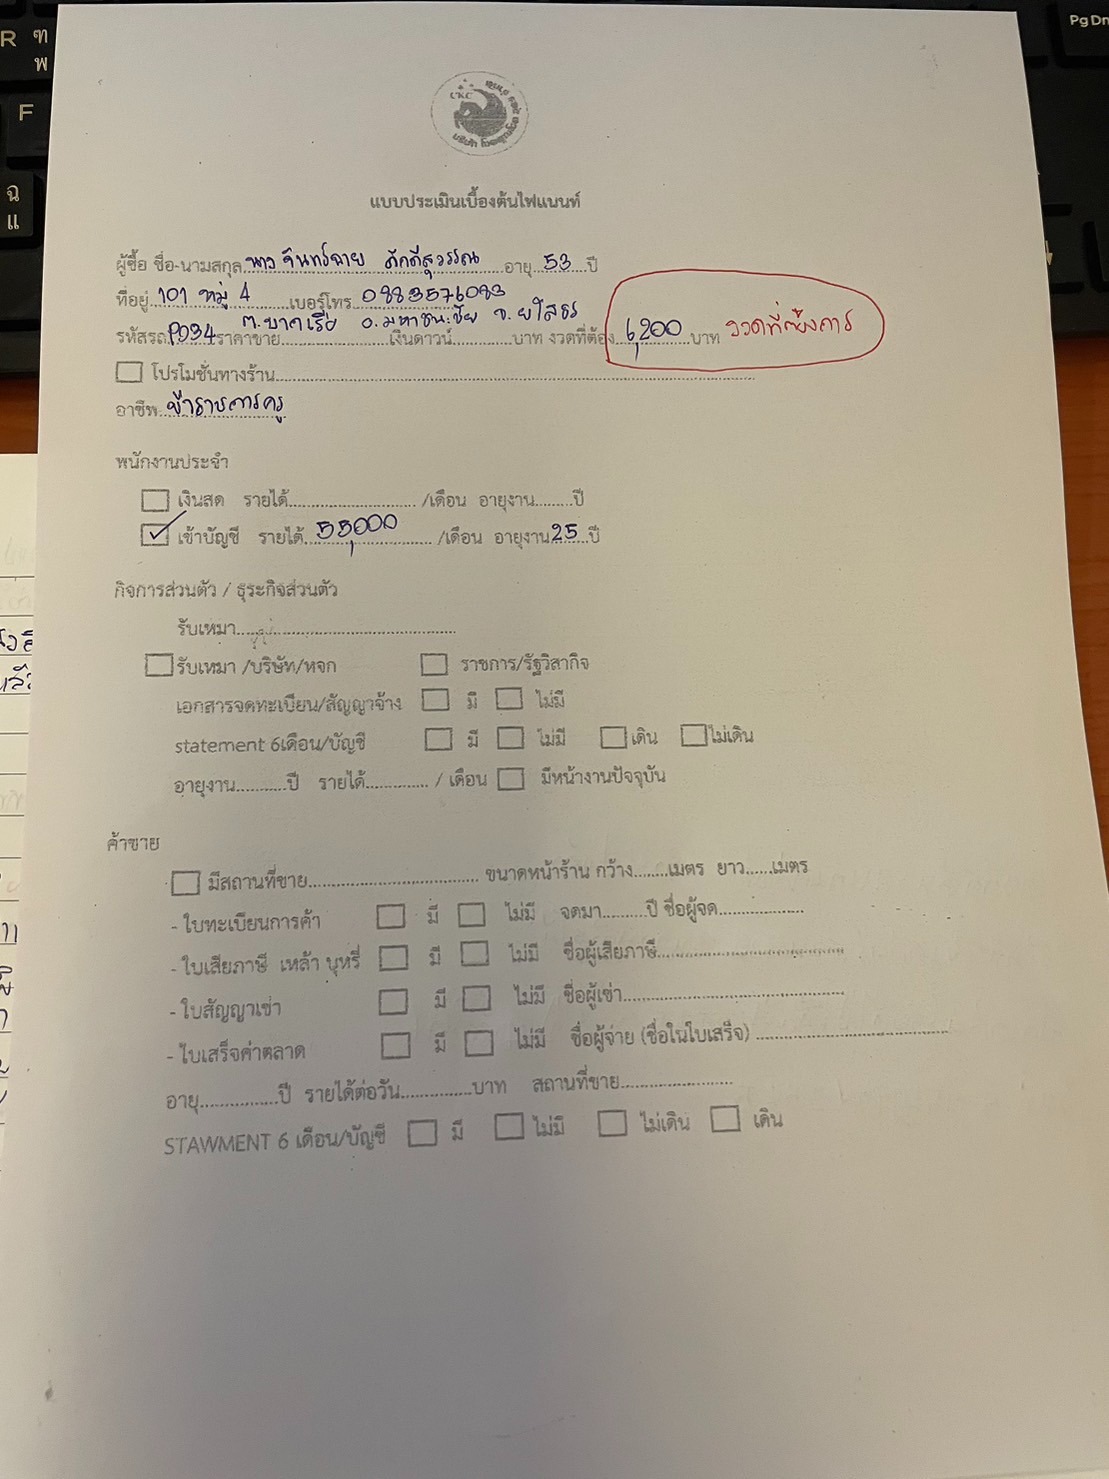 CKC
แบบประเมินเบื้องต้นไฟแนนท์
ผู้ซื้อ ชื่อ-นามสกุล นาง จันทร์ฉาย ภักดีสุวรรณ อายุ 53 ปี
ที่อยู่ 101 หมู่ 4 เบอร์โทร 0883576083
ต.บากเรือ อ.มหาชนะชัย จ.ยโสธร
รหัสรถ P934 ราคาขาย........เงินดาวน์........บาท งวดที่ต้อง 6,200 บาท งวดที่ต้องการ
โปรโมชั่นทางร้าน
อาชีพ ข้าราชการครู
พนักงานประจำ
เงินสด รายได้........ /เดือน อายุงาน........ปี
เข้าบัญชี รายได้ 55,000 /เดือน อายุงาน 25 ปี
กิจการส่วนตัว / ธุระกิจส่วนตัว
รับเหมา
รับเหมา /บริษัท/หจก ราชการ/รัฐวิสากิจ
เอกสารจดทะเบียน/สัญญาจ้าง มี ไม่มี
statement 6เดือน/บัญชี มี ไม่มี เดิน ไม่เดิน
อายุงาน........ปี รายได้........ / เดือน มีหน้างานปัจจุบัน
ค้าขาย
มีสถานที่ขาย........ ขนาดหน้าร้าน กว้าง........เมตร ยาว......เมตร
- ใบทะเบียนการค้า มี ไม่มี จดมา........ปี ชื่อผู้จด........
- ใบเสียภาษี เหล้า บุหรี่ มี ไม่มี ชื่อผู้เสียภาษี........
- ใบสัญญาเช่า มี ไม่มี ชื่อผู้เช่า........
- ใบเสร็จค่าตลาด มี ไม่มี ชื่อผู้จ่าย (ชื่อในใบเสร็จ) ........
อายุ........ปี รายได้ต่อวัน........บาท สถานที่ขาย........
STAWMENT 6 เดือน/บัญชี มี ไม่มี ไม่เดิน เดิน
R
F
PgDn